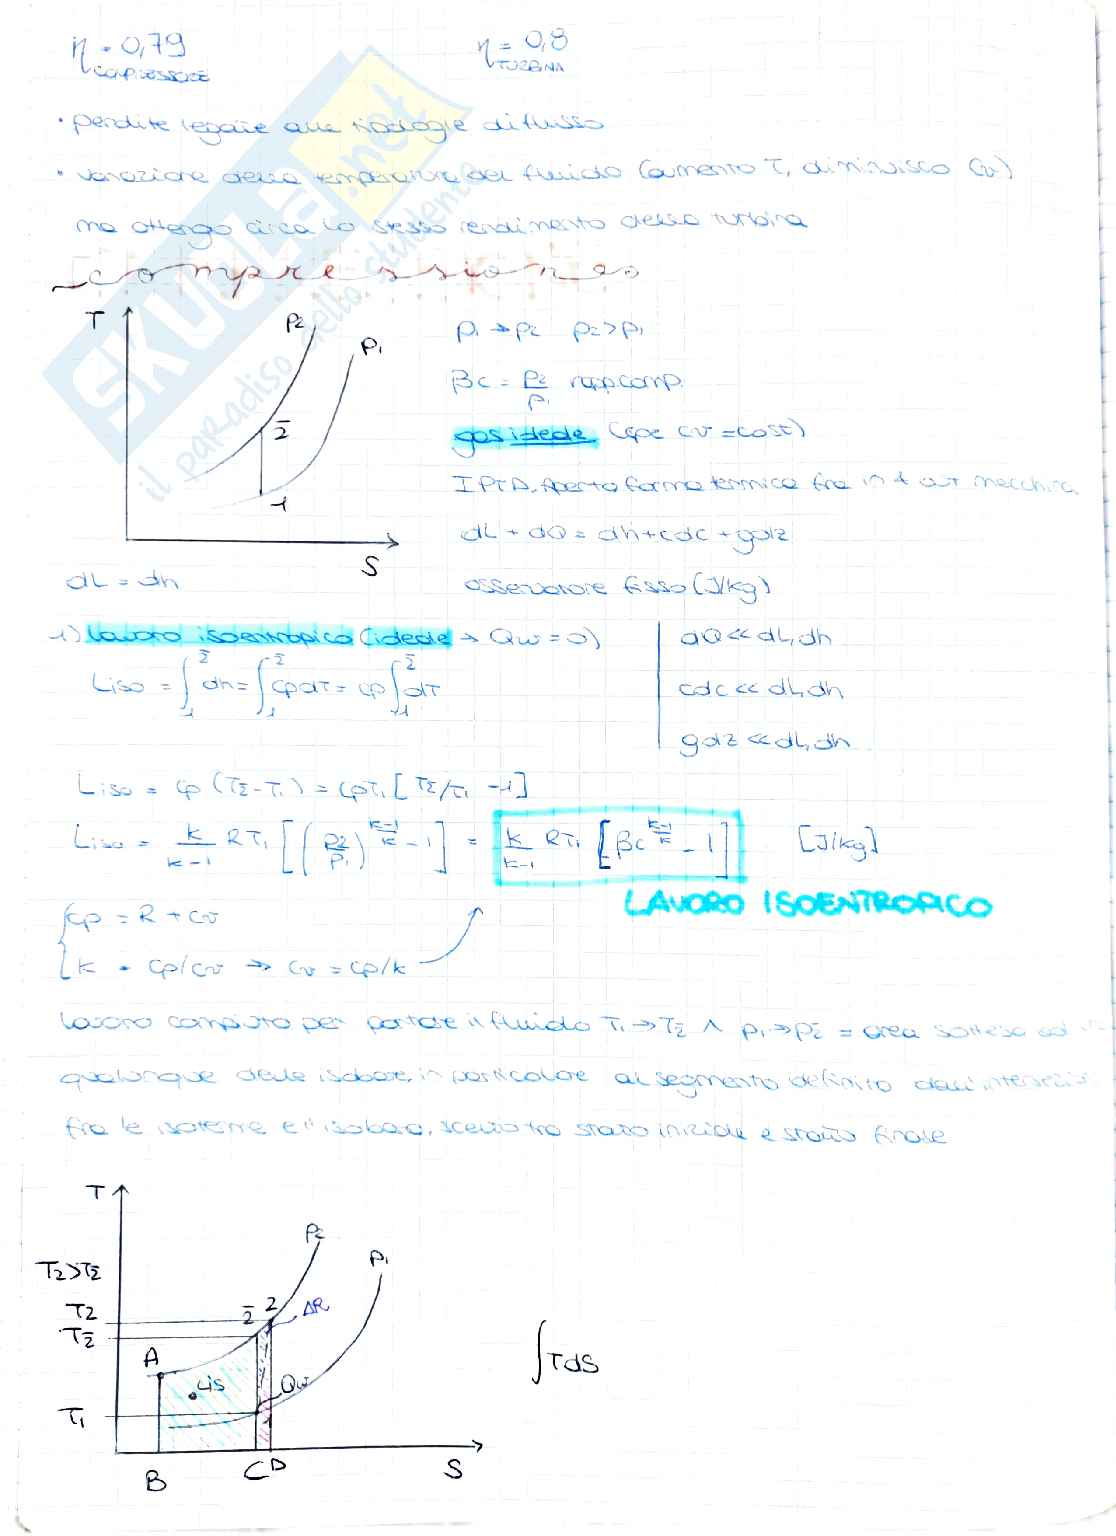 η = 0,79 η = 0,8
COMPRESSORE TURBINA
• perdite legate alle tipologie di flusso
• variazione della temperatura del fluido (aumento T, diminuisco cv)
ma ottengo circa lo stesso rendimento della turbina
compressione
T P2 P1 2̄ 1 S
p1 → p2 p2 > p1
βc = p2/p1 rapp. comp.
gas ideale (cp e cv = cost)
I PTD. Aperto forma termica fra in & out macchina
dL + dQ = dh + cdc + gdz
dL = dh osservatore fisso (J/kg)
1) lavoro isoentropico (ideale → Qw = 0) dQ << dL, dh
Liso = ∫₁^2̄ dh = ∫₁^2̄ cp dT = cp ∫₁^2̄ dT cdc << dL, dh
gdz << dL, dh
Liso = cp (T2̄ - T1) = cpT1 [T2̄/T1 - 1]
Liso = k/(k-1) RT1 [(p2/p1)^((k-1)/k) - 1] = k/(k-1) RT1 [βc^((k-1)/k) - 1] [J/kg]
LAVORO ISOENTROPICO
{cp = R + cv
k = cp/cv ⇒ cv = cp/k
lavoro compiuto per portare il fluido T1 → T2̄ ∧ p1 → p2̄ = area sottesa ad
qualunque delle isobare, in particolare al segmento definito dall'
fra le isoterme e l'isobara, scelto tra stato iniziale e stato finale
T P2 P1
T2 > T2̄
T2 2̄ 2 ΔR
T2̄
A
Lis Qw
T1 1
B C D S
∫TdS
SKUOLA.net
il paradiso dello studente